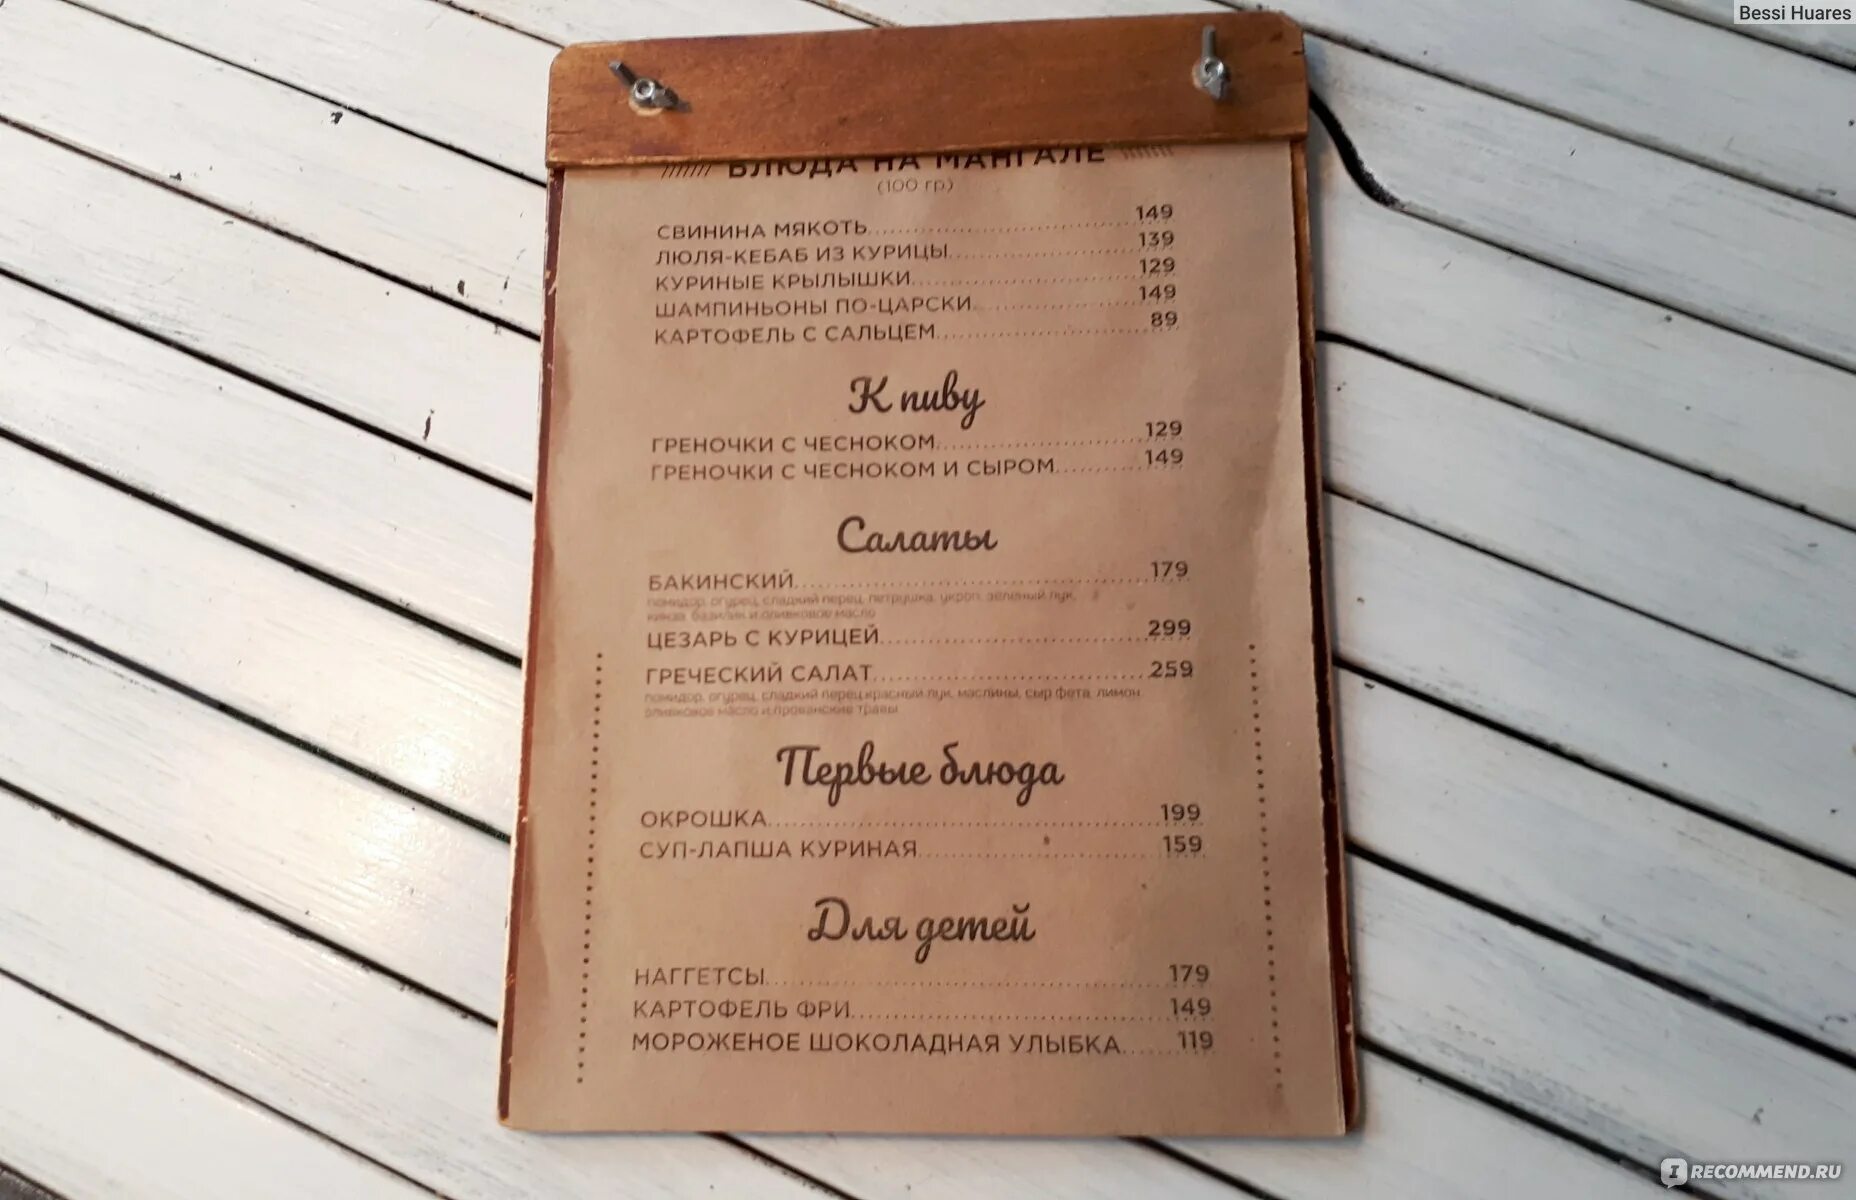 Bessi Huares
БЛЮДА НА МАНГАЛЕ
(100 гр.)
СВИНИНА МЯКОТЬ 149
ЛЮЛЯ-КЕБАБ ИЗ КУРИЦЫ 139
КУРИНЫЕ КРЫЛЫШКИ 129
ШАМПИНЬОНЫ ПО-ЦАРСКИ 149
КАРТОФЕЛЬ С САЛЬЦЕМ 89
К пиву
ГРЕНОЧКИ С ЧЕСНОКОМ 129
ГРЕНОЧКИ С ЧЕСНОКОМ И СЫРОМ 149
Салаты
БАКИНСКИЙ 179
помидор, огурец, сладкий перец, петрушка, укроп, зеленый лук,
кинза, базилик и оливковое масло
ЦЕЗАРЬ С КУРИЦЕЙ 299
ГРЕЧЕСКИЙ САЛАТ 259
помидор, огурец, сладкий перец, красный лук, маслины, сыр фета, лимон,
оливковое масло и прованские травы
Первые блюда
ОКРОШКА 199
СУП-ЛАПША КУРИНАЯ 159
Для детей
НАГГЕТСЫ 179
КАРТОФЕЛЬ ФРИ 149
МОРОЖЕНОЕ ШОКОЛАДНАЯ УЛЫБКА 119
IRECOMMEND.RU